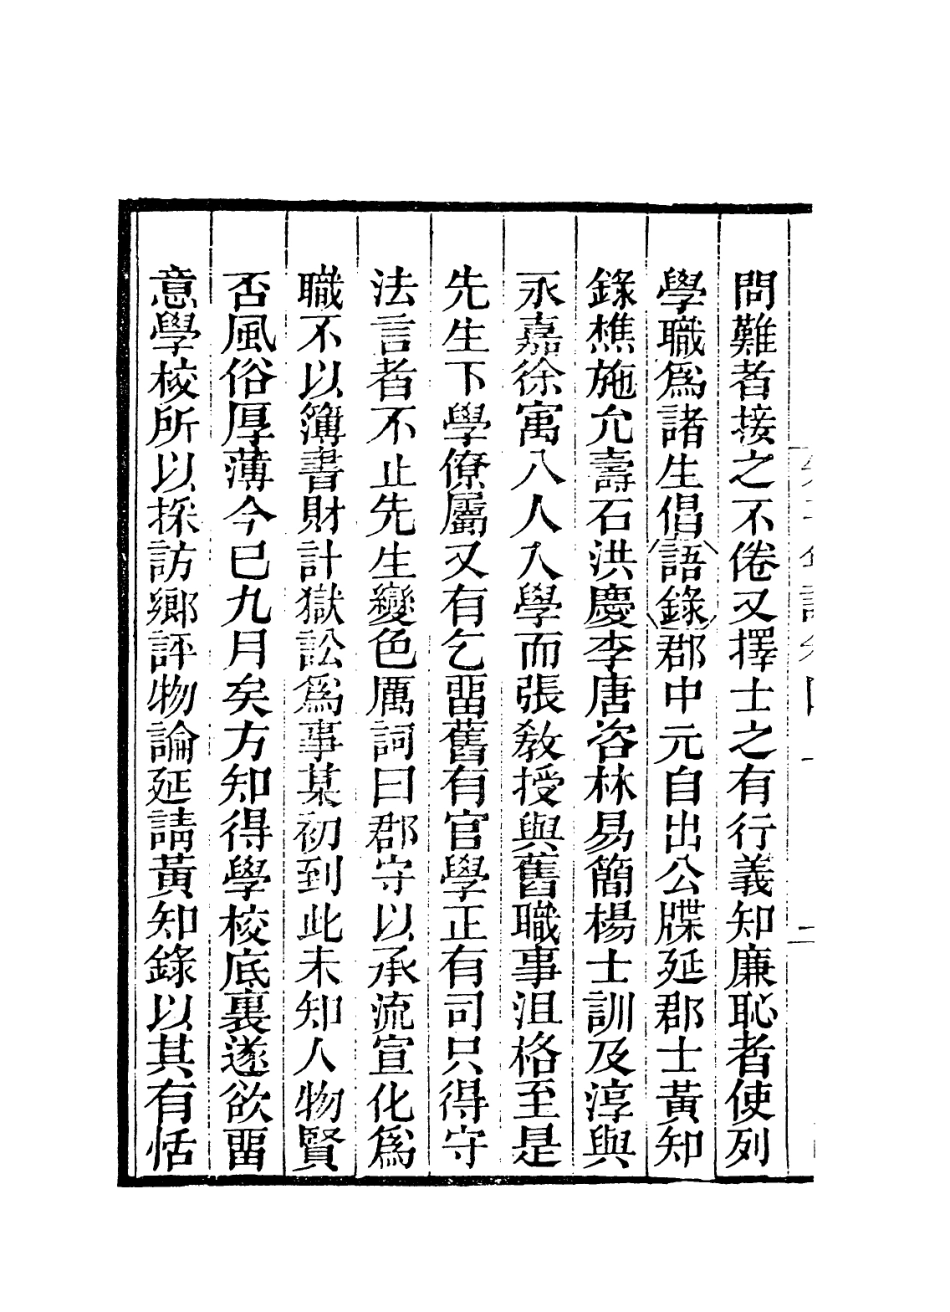 問難者接之不倦又擇士之有行義知廉恥者使列
學職爲諸生倡語錄郡中元自出公牒延郡士黃知
錄樵施允壽石洪慶李唐咨林易簡楊士訓及淳與
永嘉徐寓八人入學而張教授與舊職事沮格至是
先生下學僚屬又有乞畱舊有官學正有司只得守
法言者不止先生變色厲詞曰郡守以承流宣化爲
職不以簿書財計獄訟爲事某初到此未知人物賢
否風俗厚薄今已九月矣方知得學校底裏遂欲畱
意學校所以採訪鄉評物論延請黃知錄以其有恬